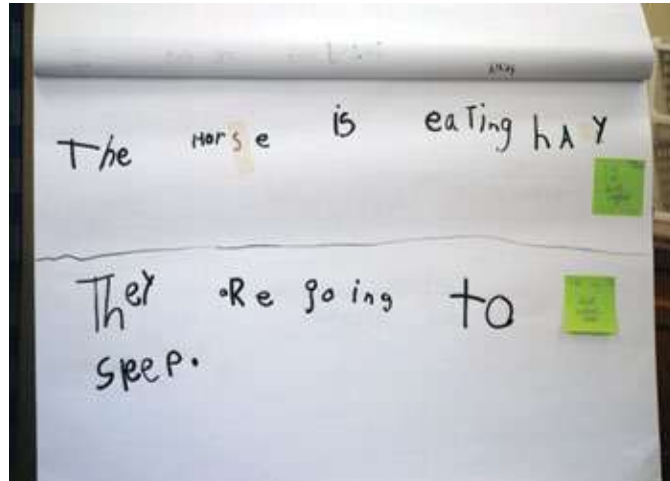 The HorSe is eaTing hAY
TheY .Re going to
Sleep.